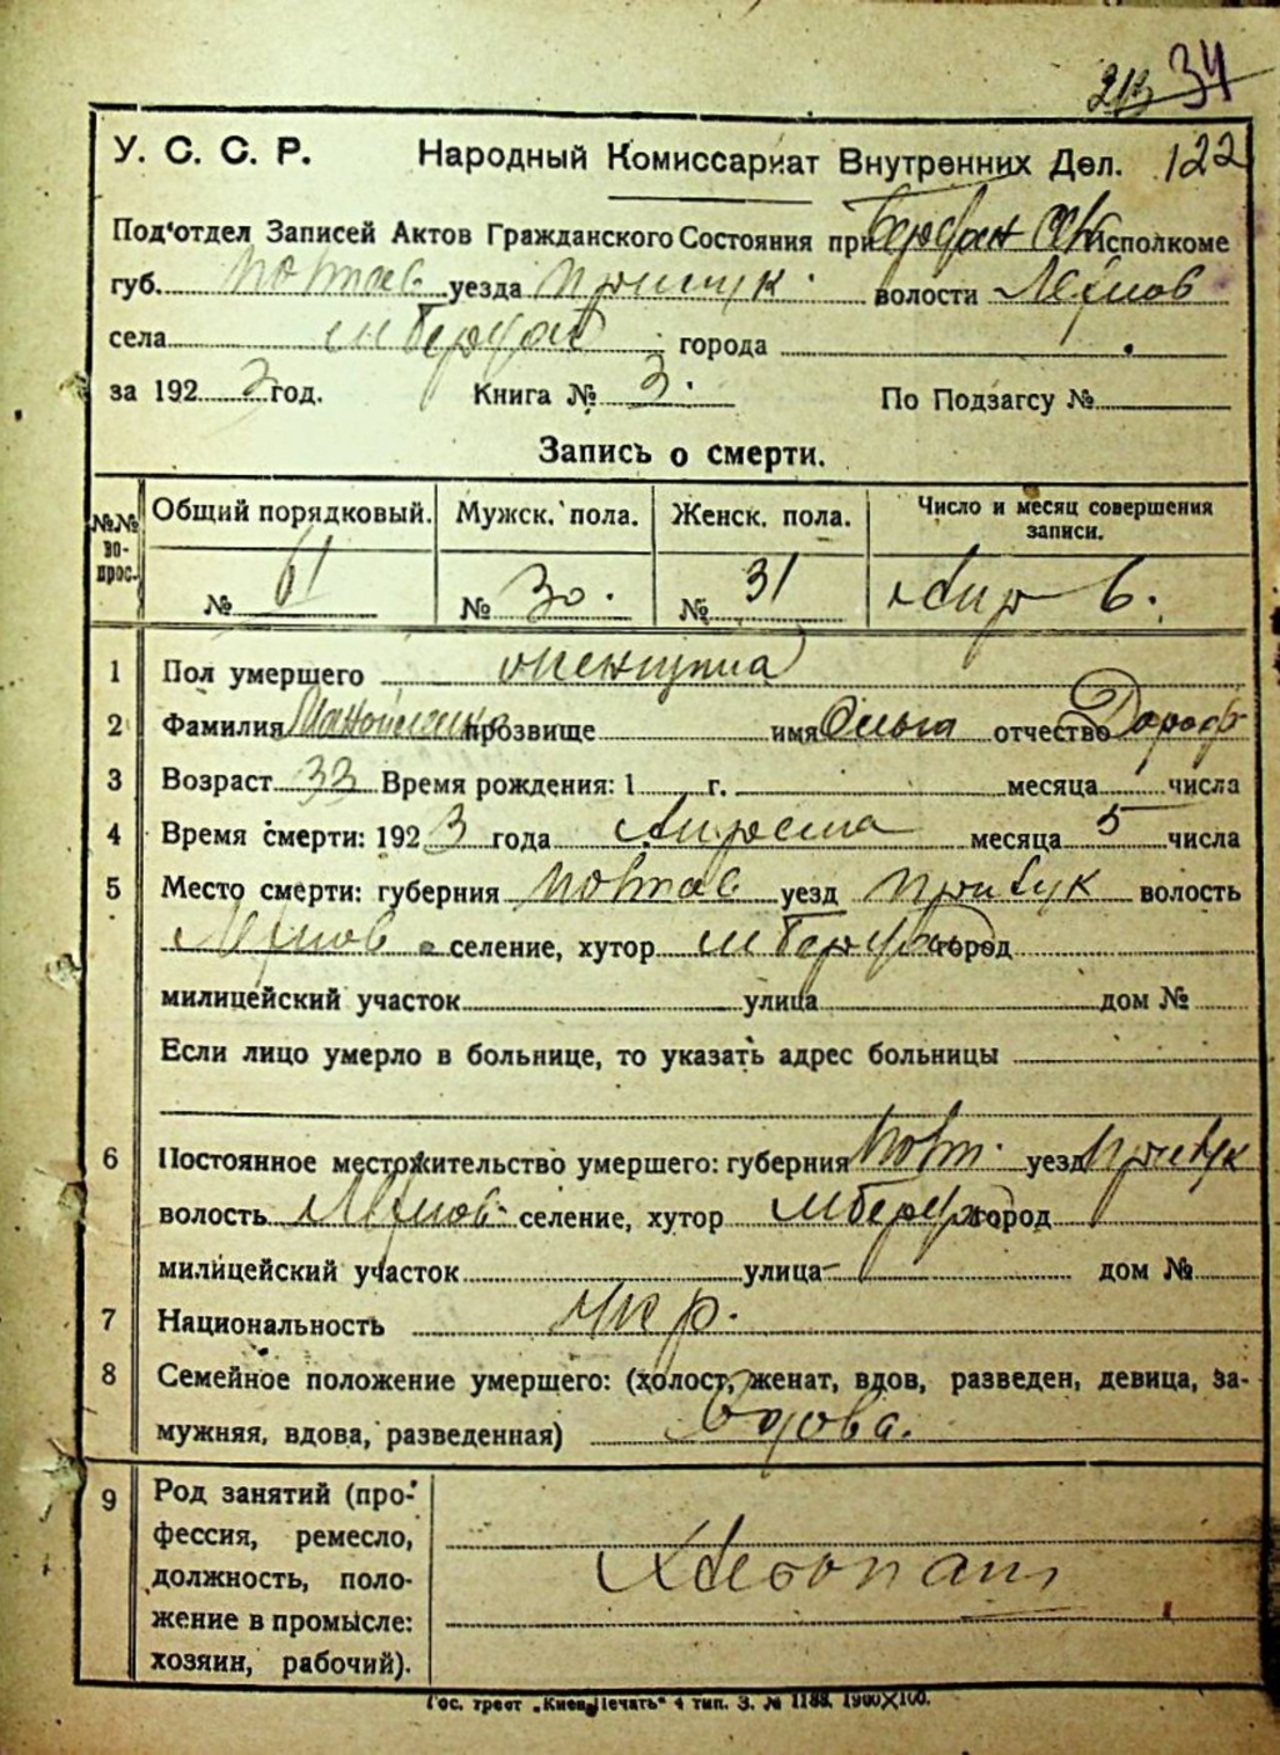 34
У. С. С. Р. Народный Комиссариат Внутренних Дел. 122
Под'отдел Записей Актов Гражданского Состояния при Исполкоме
губ. Полтав. уезда Прилук. волости
села города
за 192 3 год. Книга № 3. По Подзагсу №
Запись о смерти.
№№ вопрос. Общий порядковый. Мужск. пола. Женск. пола. Число и месяц совершения записи.
№ 61 № 30. № 31 Апр 6.
1 Пол умершего женщина
2 Фамилия прозвище имя Ольга отчество Дороф
3 Возраст 33 Время рождения: 1 г. месяца числа
4 Время смерти: 192 3 года Апреля месяца 5 числа
5 Место смерти: губерния Полтав уезд Прилук волость
селение, хутор город
милицейский участок улица дом №
Если лицо умерло в больнице, то указать адрес больницы
6 Постоянное местожительство умершего: губерния Полт. уезд Прилук
волость селение, хутор город
милицейский участок улица дом №
7 Национальность Укр.
8 Семейное положение умершего: (холост, женат, вдов, разведен, девица, за-
мужняя, вдова, разведенная) Вдова.
9 Род занятий (про-
фессия, ремесло,
должность, поло-
жение в промысле:
хозяин, рабочий).
Хлебопаш
Гос. трест „Киев-Печать" 4 тип. З. № 1188. 1900X100.